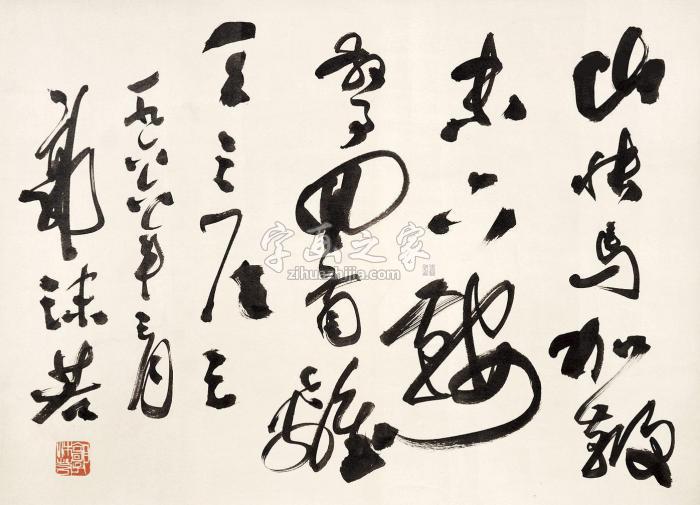 山快馬加鞭
未下鞍
驚回首離
天三尺三
一九六六年三月
郭沫若
字画之家
zihuazhijia.com